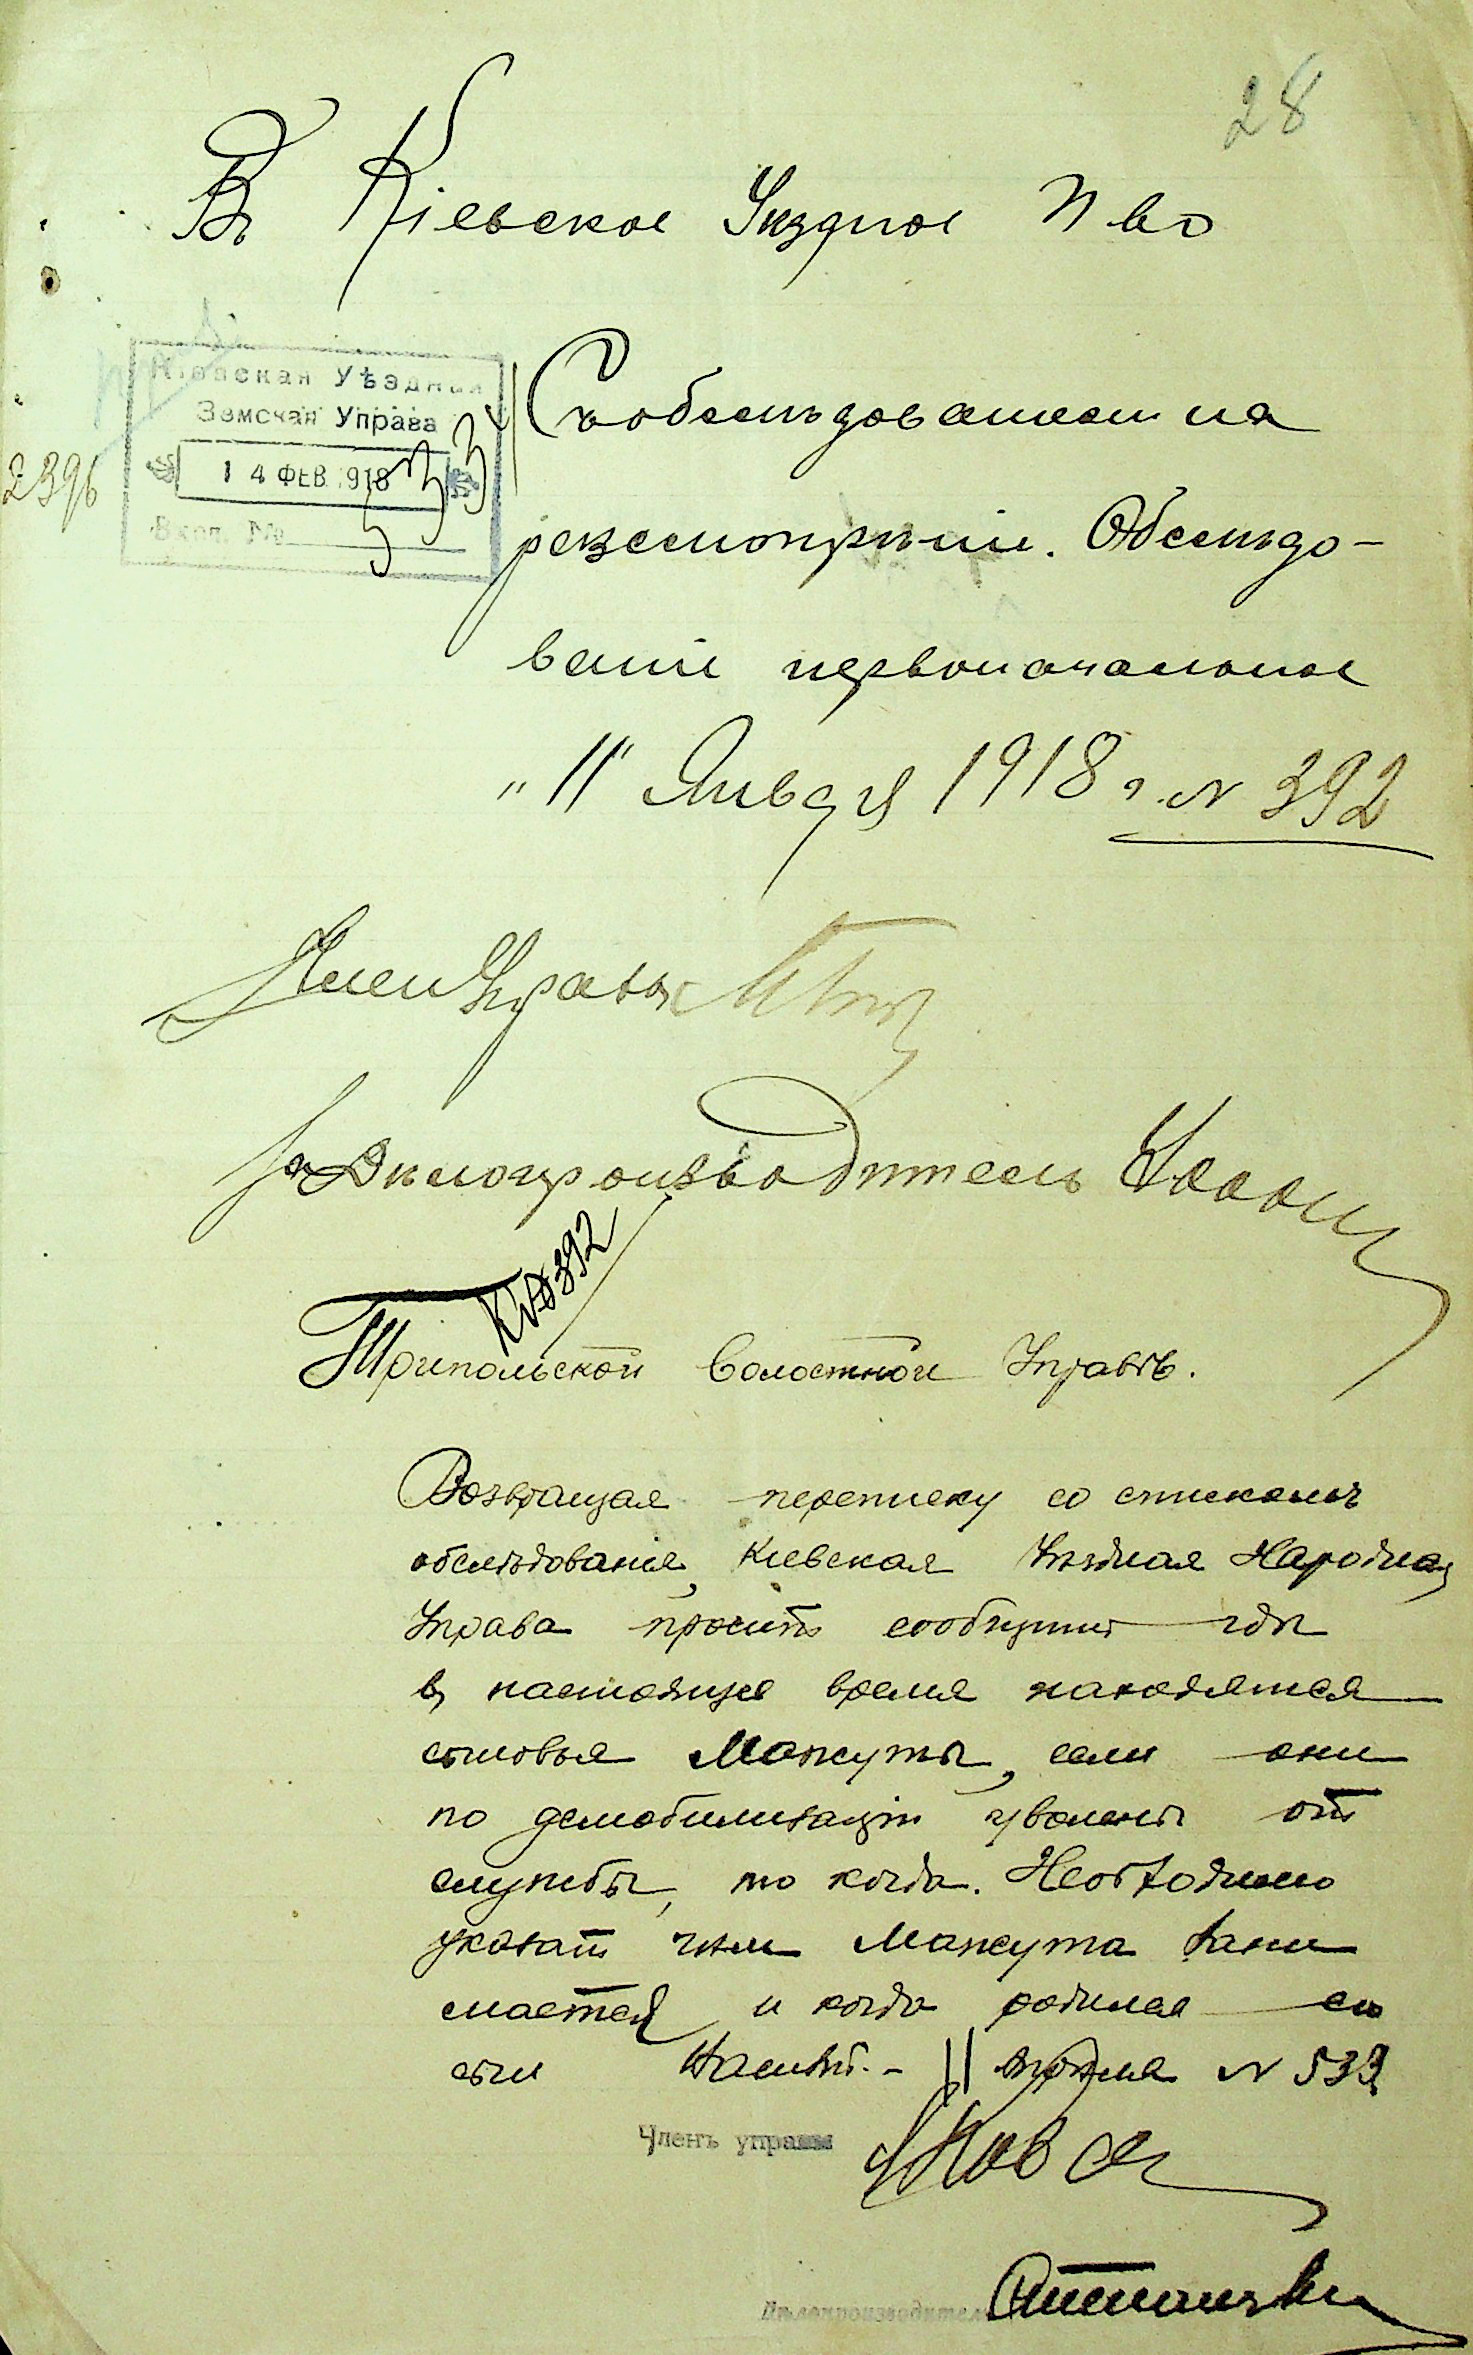 28
Въ Кіевское Уѣздное П во
Кіевская Уѣздная
Земская Управа
14 ФЕВ 1918
Вход. №
533
2396
Съ обслѣдованіемъ на
разсмотрѣніе. Обслѣдо-
ваніе первоначальное
"11" Января 1918 г. N 392
Член Управы
За Дѣлопроизводитель
К № 392
Трипольской Волостной Управѣ.
Возвращая переписку со спискомъ
обслѣдованія, Кіевская Уѣздная Народная
Управа проситъ сообщить гдѣ
въ настоящее время находятся
сыновья Мажуты, если они
по демобилизаціи уволены отъ
службы, то когда. Необходимо
указать чѣмъ Мажута зани
мается и когда родился его
сын N 533
Членъ управы
Дѣлопроизводитель